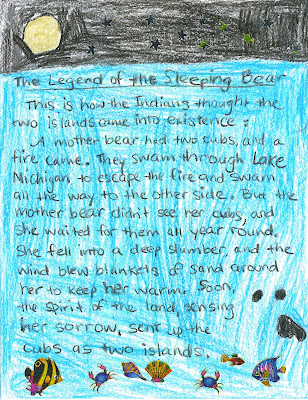 The Legend of the Sleeping Bear
This is how the Indians thought the
two islands came into existence:
A mother bear had two cubs, and a
fire came. They swam through Lake
Michigan to escape the fire and swam
all the way to the other side. But the
mother bear didn't see her cubs, and
she waited for them all year round.
She fell into a deep slumber, and the
wind blew blankets of sand around
her to keep her warm. Soon,
the spirit of the land, sensing
her sorrow, sent up the
cubs as two islands.